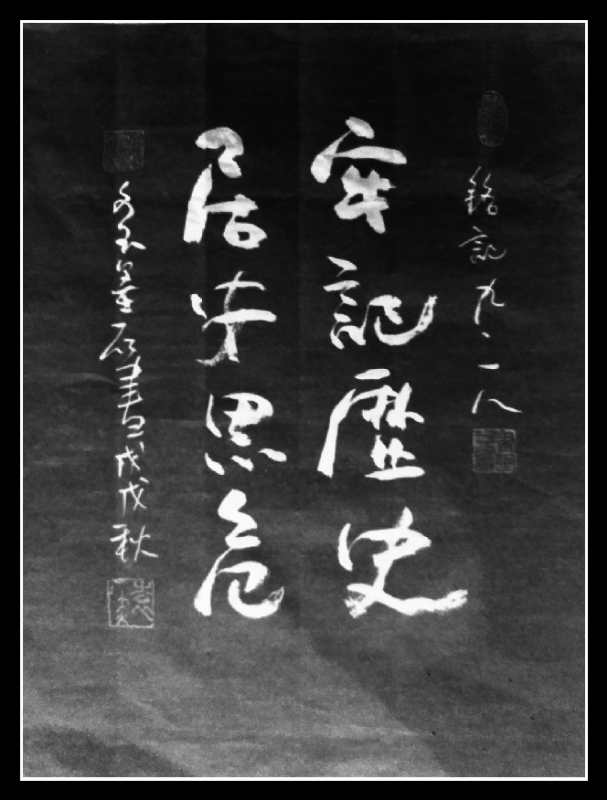 銘記九·一八
牢記歷史
居安思危
書戊戌秋